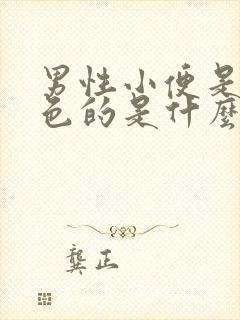 男性小便是
色的是什麼
龔正